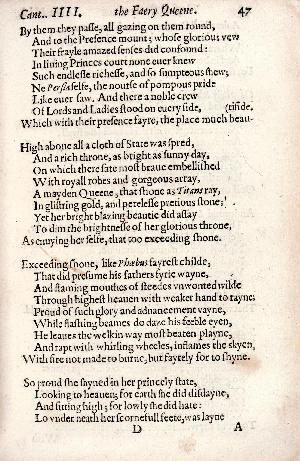 Cant. IIII. the Faery Queene. 47
By them they passe, all gazing on them round,
And to the Presence mount; whose glorious vew
Their frayle amazed senses did confound:
In liuing Princes court none euer knew
Such endlesse richesse, and so sumpteous shew;
Ne Persia selfe, the nourse of pompous pride
Like euer saw. And there a noble crew
Of Lords and Ladies stood on euery side,
Which with their presence fayre, the place much beau-
(tifide.
High aboue all a cloth of State was spred,
And a rich throne, as bright as sunny day,
On which there sate most braue embellished
With royall robes and gorgeous array,
A mayden Queene, that shone as Titans ray,
In glistring gold, and perelesse pretious stone;
Yet her bright blazing beautie did assay
To dim the brightnesse of her glorious throne,
As enuying her selfe, that too exceeding shone.
Exceeding shone, like Phœbus fayrest childe,
That did presume his fathers fyrie wayne,
And flaming mouthes of steedes vnwonted wilde
Through highest heauen with weaker hand to rayne;
Proud of such glory and aduancement vayne,
While flashing beames do daze his feeble eyen,
He leaues the welkin way most beaten playne,
And rapt with whirling wheeles, inflames the skyen,
With fire not made to burne, but fayrely for to shyne.
So proud she shyned in her princely state,
Looking to heauen; for earth she did disdayne,
And sitting high; for lowly she did hate:
Lo vnder neath her scornefull feete, was layne
D A